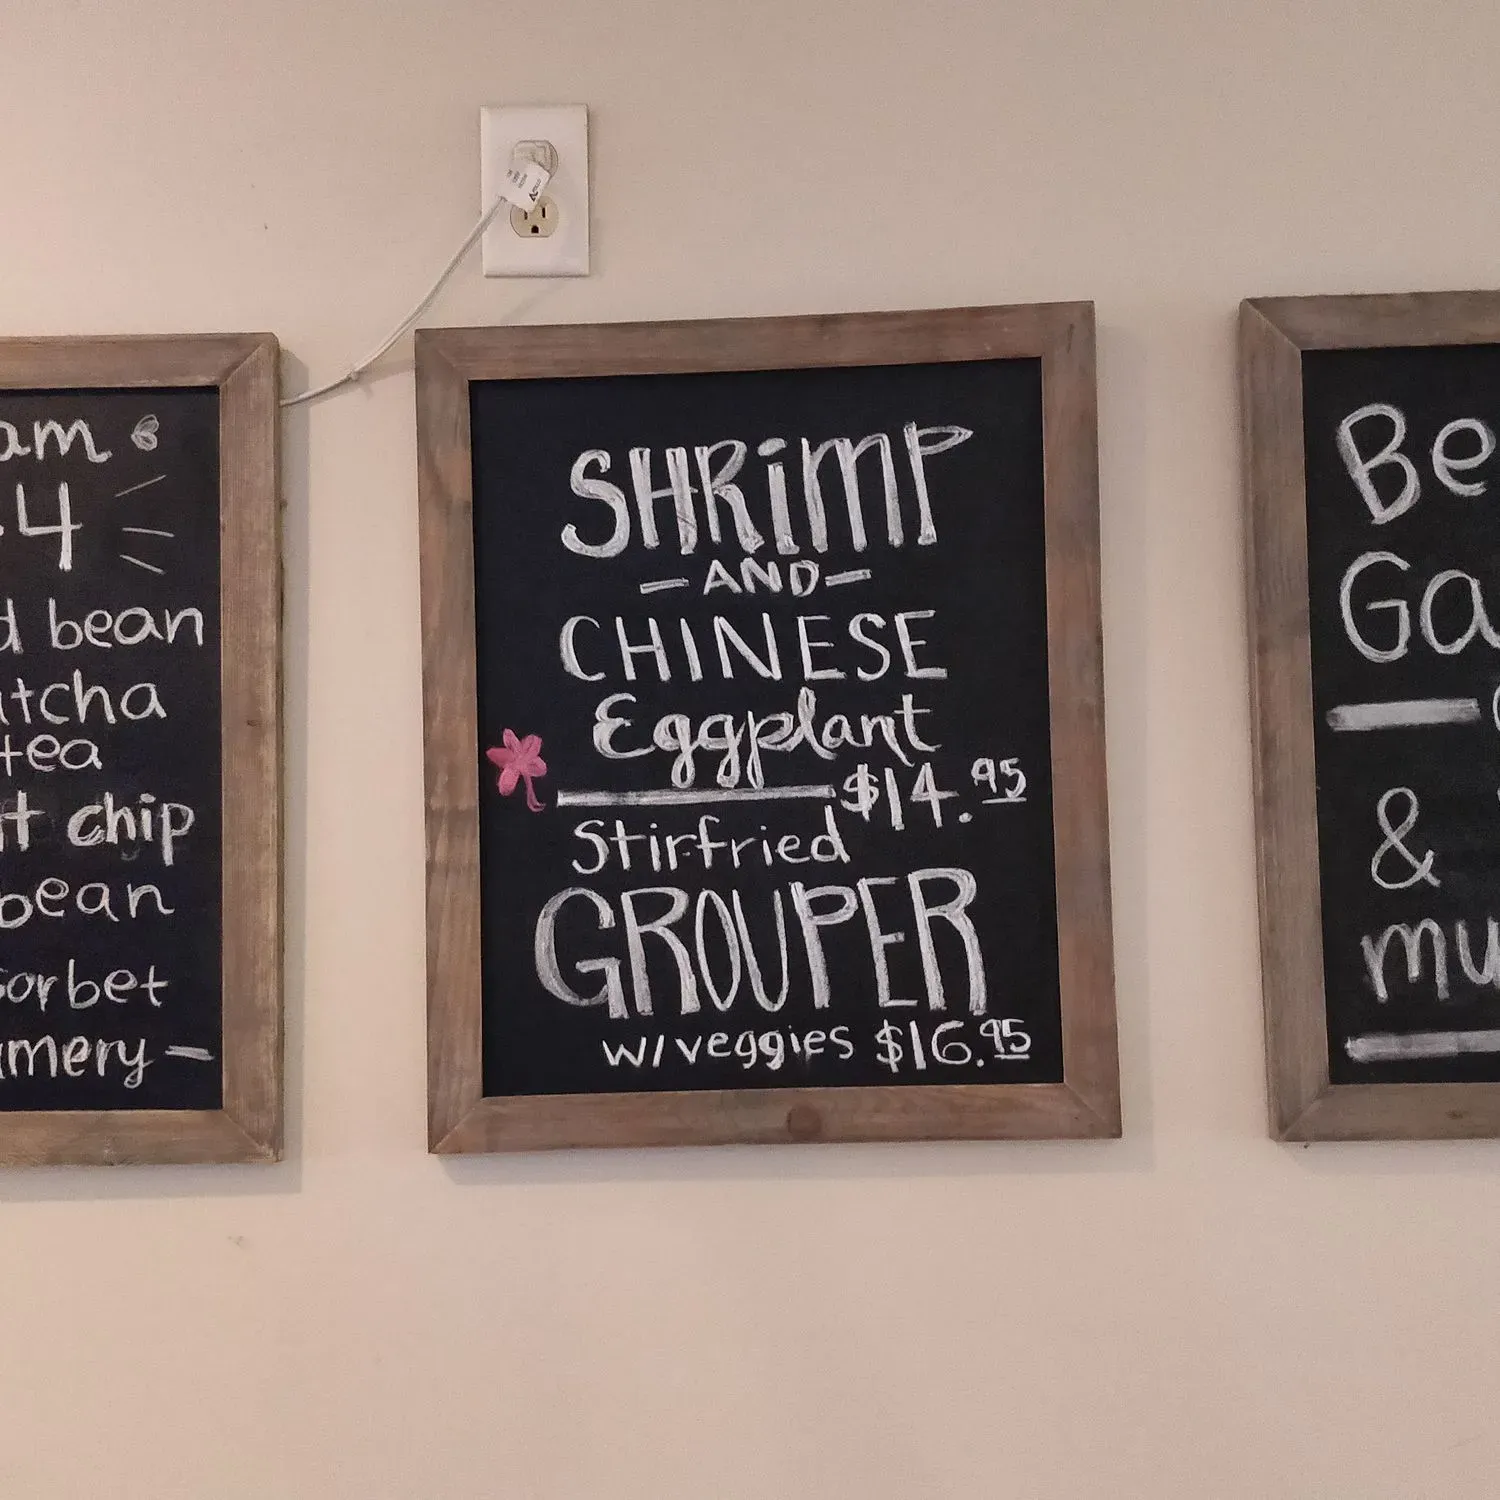 am
4
bean
tea
chip
bean
sorbet
SHRiMP
-AND-
CHINESE
Eggplant
$14.95
Stirfried
GROUPER
w/veggies $16.95
Be
Ga
&
mu